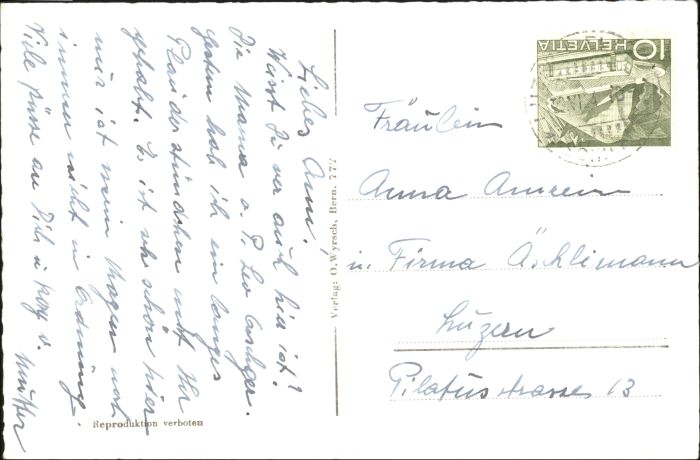 Liebes Anni!
Weist Du wer auch hier ist?
Die Mama v. P. Leo
Gestern hab ich ein langes
Plauderstündchen mit Ihr
gehabt. Es ist sehr schön hier
nur ist mein Magen noch
immer nicht in Ordnung.
Viele Grüsse an Dich u. v.
Mutter
Reproduktion verboten
Verlag: O. Wyrsch, Bern. 777
10
HELVETIA
Fräulein
Anna Amrein
u. Firma Äschlimann
Luzern
Pilatusstrasse 13